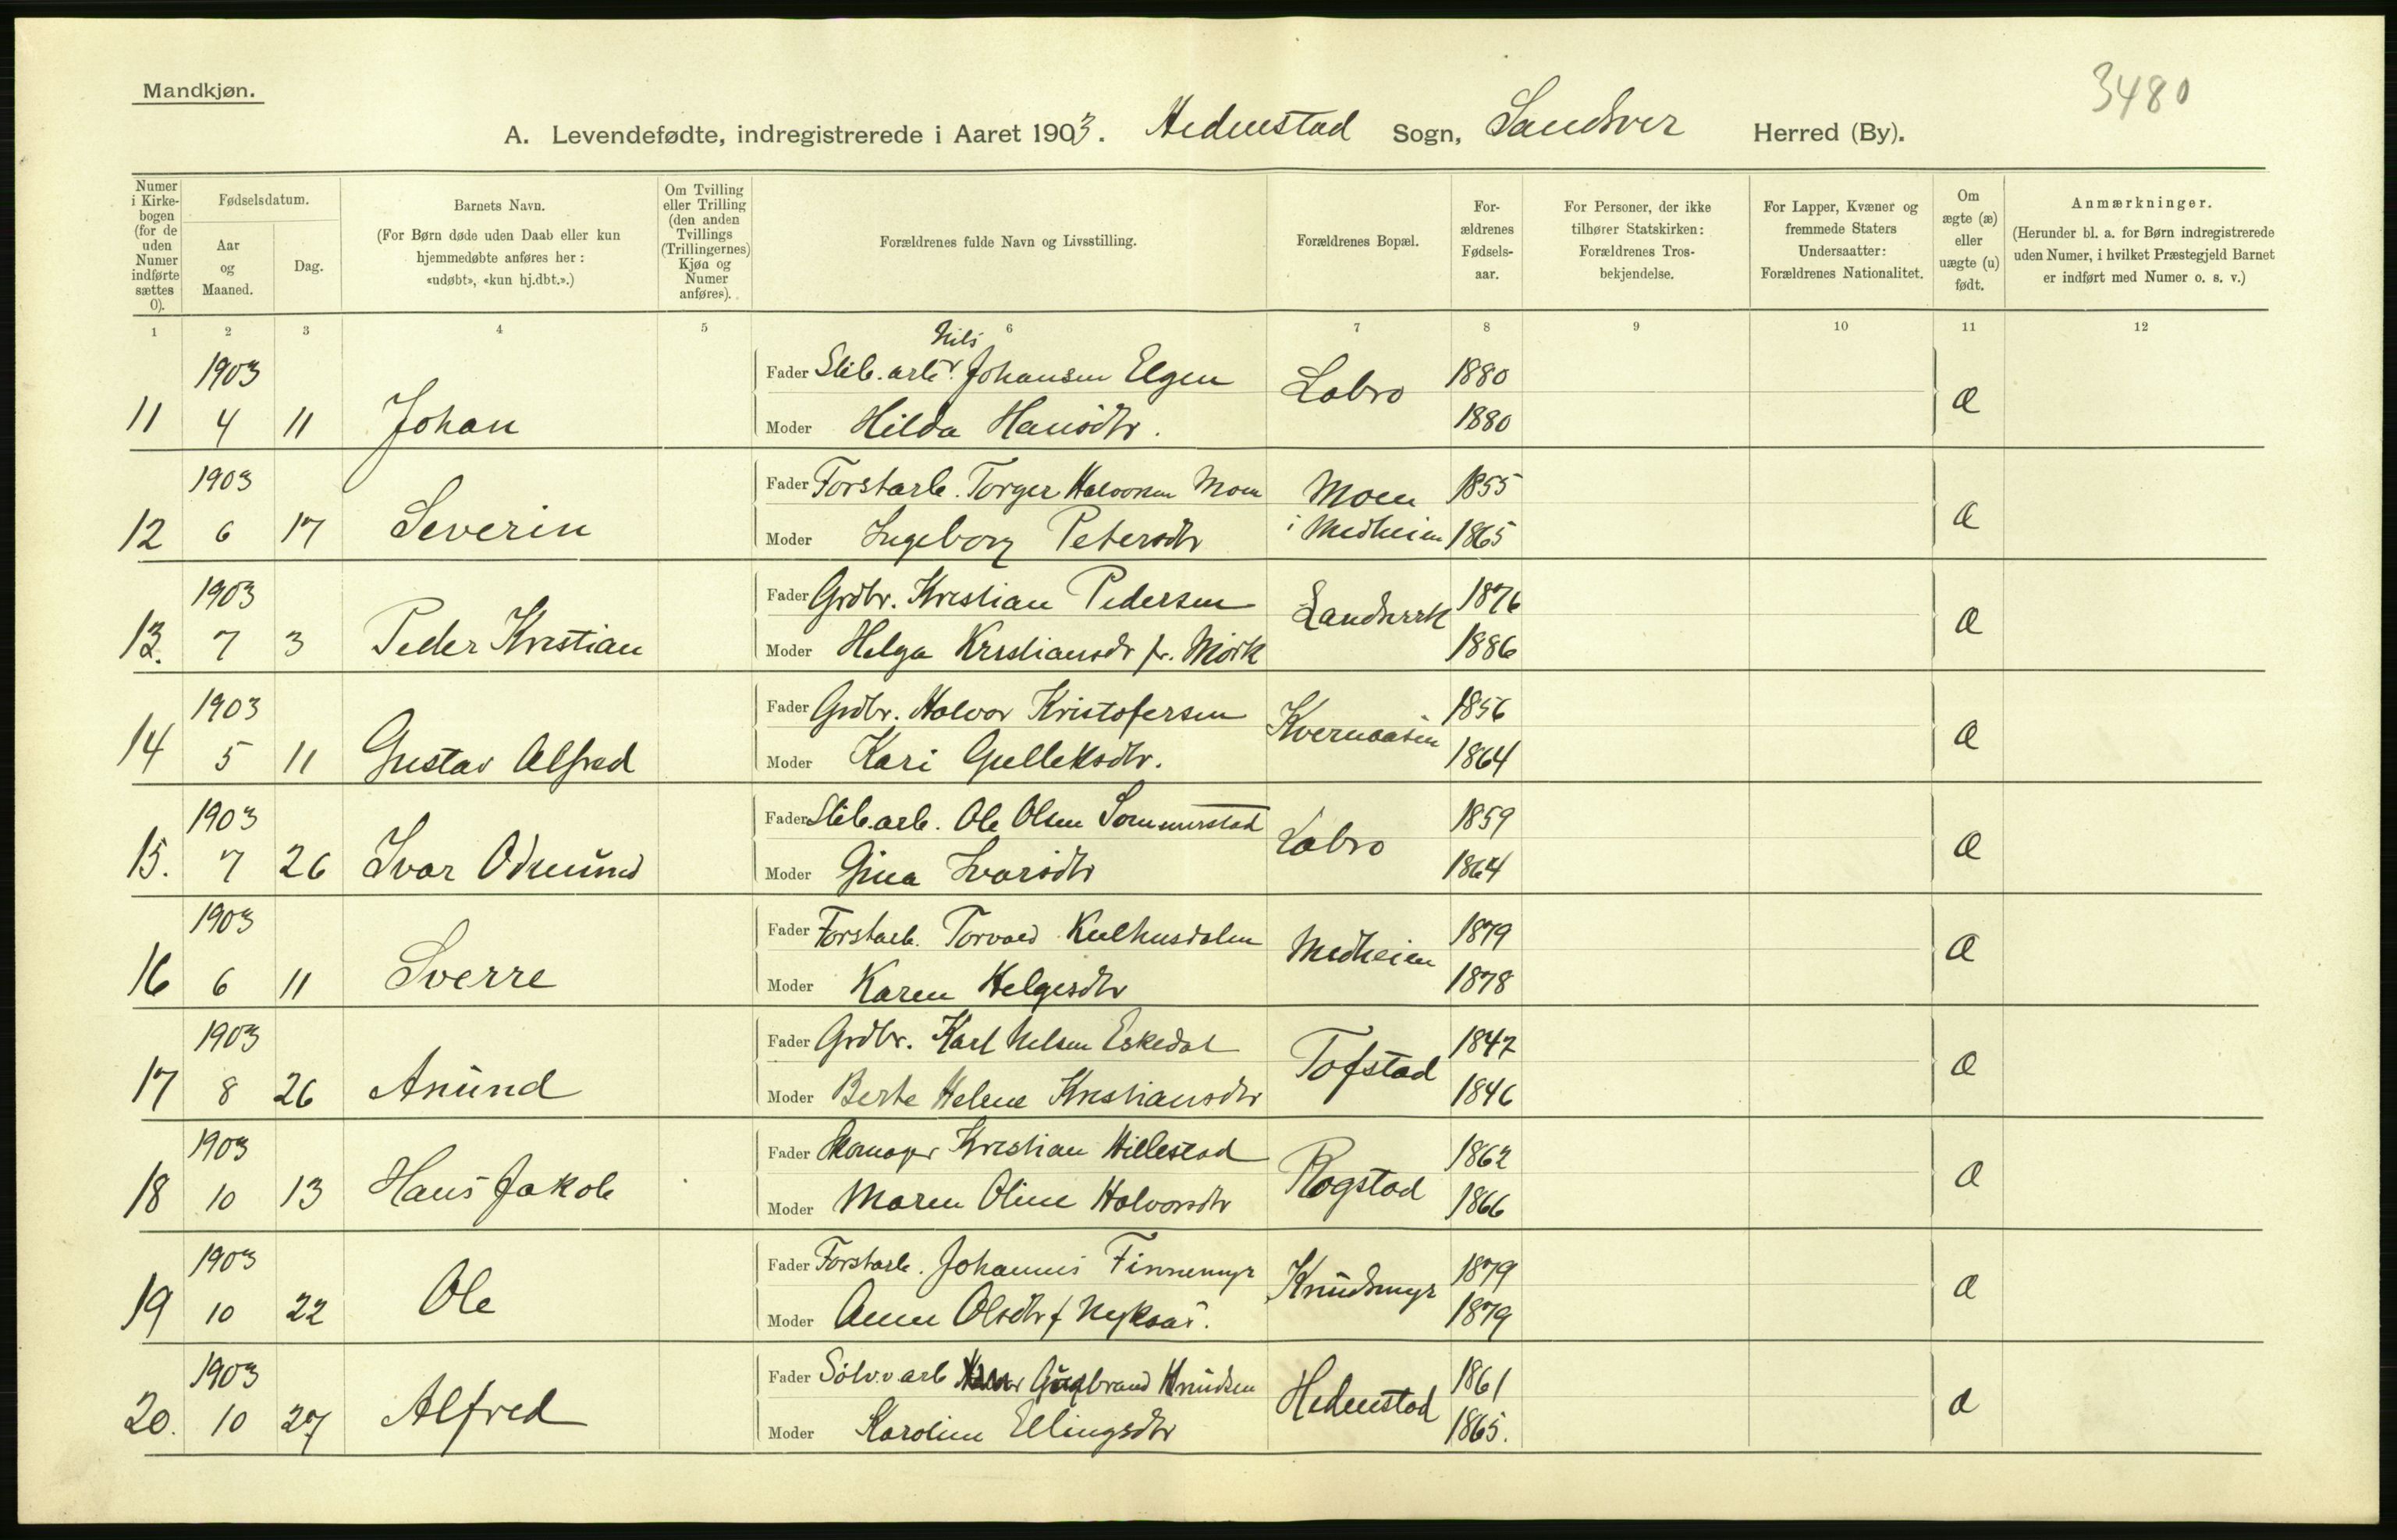 Mandkjøn.
3480
A. Levendefødte, indregistrerede i Aaret 1903. Hedenstad Sogn, Sandsver Herred (By).
Numer i Kirkebogen (for de uden Numer indførte sættes 0).
Fødselsdatum.
Aar og Maaned.
Dag.
Barnets Navn.
(For Børn døde uden Daab eller kun hjemmedøbte anføres her: «udøbt», «kun hj.dbt.».)
Om Tvilling eller Trilling (den anden Tvillings (Trillingernes) Kjøn og Numer anføres).
Forældrenes fulde Navn og Livsstilling.
Forældrenes Bopæl.
Forældrenes Fødselsaar.
For Personer, der ikke tilhører Statskirken: Forældrenes Trosbekjendelse.
For Lapper, Kvæner og fremmede Staters Undersaatter: Forældrenes Nationalitet.
Om ægte (æ) eller uægte (u) født.
Anmærkninger.
(Herunder bl. a. for Børn indregistrerede uden Numer, i hvilket Præstegjeld Barnet er indført med Numer o. s. v.)
1 2 3 4 5 6 7 8 9 10 11 12
1903 Fader Slib.arb. Nils Johansen Elgen Labro 1880
11 4 11 Johan Moder Hilda Hansdtr. 1880 æ
1903 Fader Forstarb. Torger Halvorsen Moen Moen 1855
12 6 17 Severin Moder Ingeborg Petersdtr i Medheien 1865 æ
1903 Fader Grdbr. Kristian Pedersen Landverk 1876
13. 7 3 Peder Kristian Moder Helga Kristiansdr f. Mörk 1886 æ
1903 Fader Grdbr. Halvor Kristofersen Kvernaasen 1856
14 5 11 Gustav Alfred Moder Kari Gulleksdtr. 1864 æ
1903 Fader Slib.arb. Ole Olsen Sommerstad Labro 1859
15. 7 26 Ivar Odmund Moder Gina Ivarsdtr 1864 æ
1903 Fader Forstarb. Torvald Kulhusdalen Medheien 1879
16 6 11 Sverre Moder Karen Helgesdtr 1878 æ
1903 Fader Grdbr. Karl Nelsen Eskedal Tofstad 1847
17 8 26 Anund Moder Berte Helene Kristiansdtr 1846 æ
1903 Fader Skomager Kristian Hillestad Rogstad 1862
18 10 13 Hans Jakob Moder Maren Oline Halvorsdtr 1866 æ
1903 Fader Forstarb. Johannes Finnemyr Knudsmyr 1879
19 10 22 Ole Moder Anne Olsdtr f Nyksås. 1879 æ
1903 Fader Sölvv.arb Gudbrand Knudsen Hedenstad 1861
20. 10 27 Alfred Moder Karoline Ellingsdtr 1865. æ